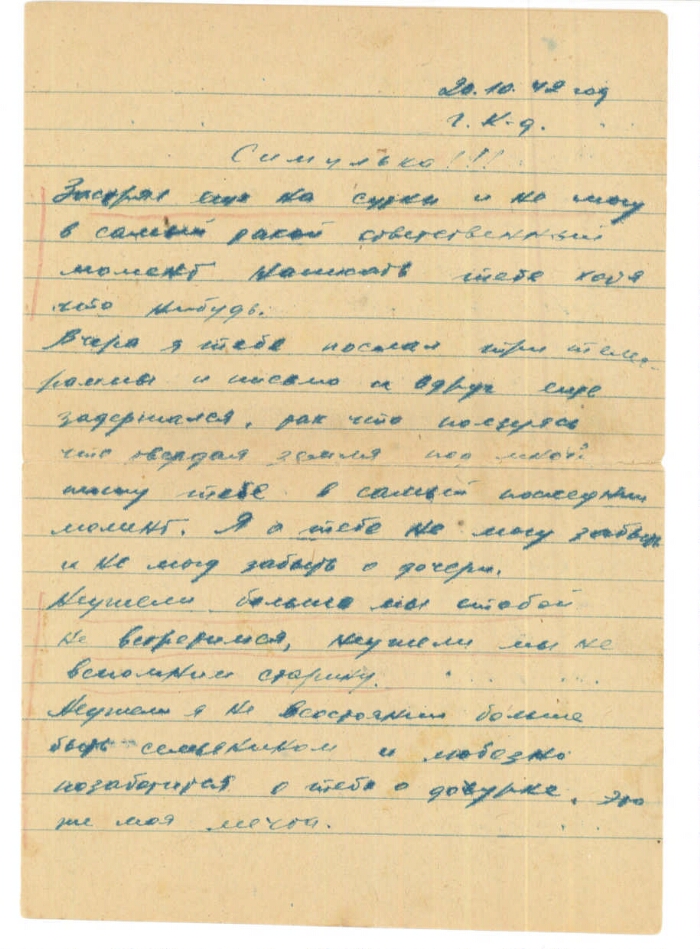 20.10.42 год
г. К-д.
Симулька!!!
Застрял еще на сутки и не могу
в самый такой ответственный
момент написать тебе хотя
что нибудь.
Вчера я тебе послал три теле-
раммы и письмо и вдруг еще
задержался, так что пользуясь
что твердая земля под мной
пишу тебе в самый последний
момент. Я о тебе не могу забыть
и не могу забыть о дочери.
Неужели больше мы стобой
не встретимся, неужели мы не
вспомним старину. . . .
Неужели я не всостоянии больше
быть семьяником и любезно
позаботится о тебе о дочурке. Это
же моя мечта.